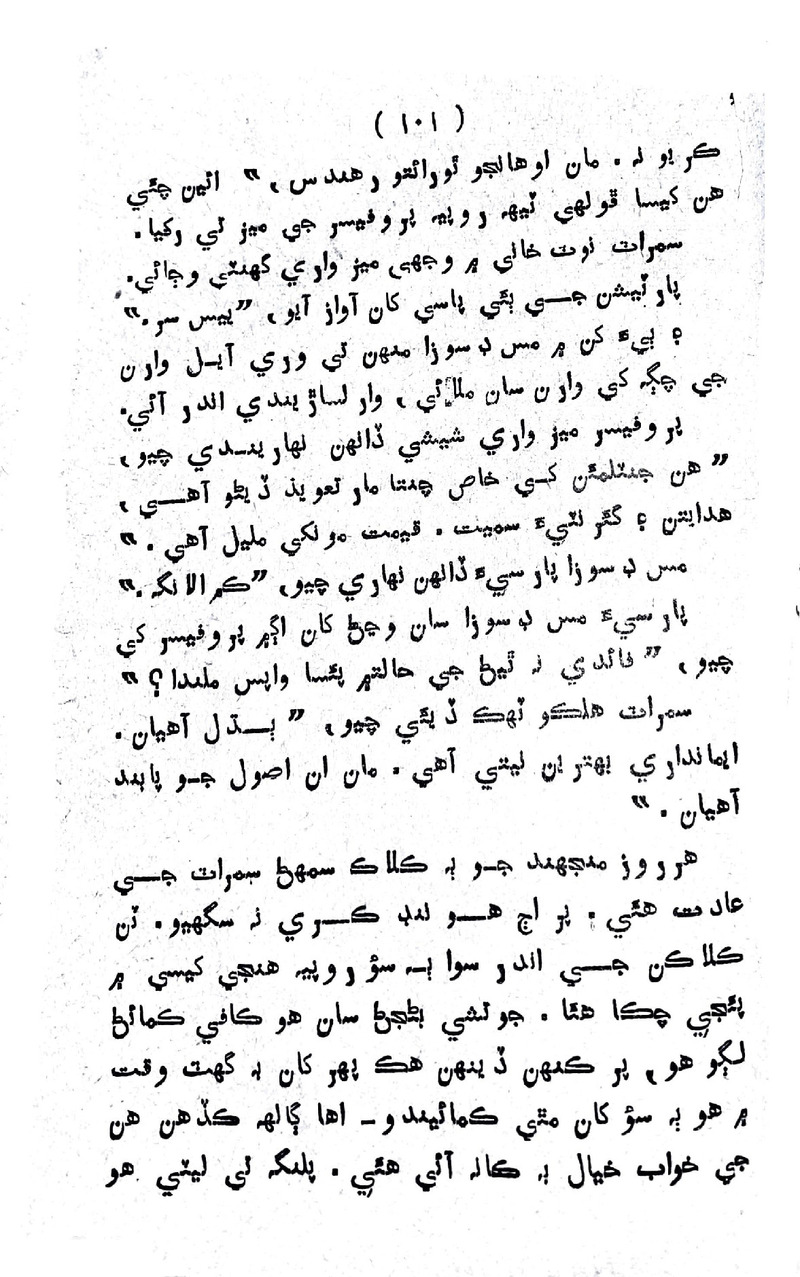 ( ۱۰۱ )
ڪريو نہ. مان اوهانجو ٿورائتو رهندس، “ ائين چئي
هن کيسا ڦولهي ٽيهہ روپيہ پروفيسر جي ميز تي رکيا.
سمراٽ نوٽ خاني ۾ وجهي ميز واري گهنٽي وڄائي.
پارٽيشن جـــي ٻئي پاسي کان آواز آيو، ”ييس سر.“
۽ ٻيءَ کن ۾ مس ڊسوزا منهن تي وري آيـل وارن
جي چڳہ کي وارن سان ملائي، وار لساڙيندي اندر آئي.
پروفيسر ميز واري شيشي ڏانهن نهاريندي چيو،
”هن جنٽلمئن کـي خاص چنتا مار تعويذ ڏيڻو آهـــي،
هدايتن ۽ گئرنٽيءَ سميت. قيمت مونکي مليل آهي.“
مس ڊسوزا پارسيءَ ڏانهن نهاري چيو، ”ڪم الانگہ.“
پارسيءَ مس ڊسوزا سان وڃڻ کان اڳ۾ پروفيسر کي
چيو، ”فائدي نہ ٿيڻ جي حالت۾ پئسا واپس ملندا؟“
سمراٽ هلڪو ٽهڪ ڏيئي چيو، ”ٻـــڌل آهيان.
ايمانداري بهترين نيتي آهي. مان ان اصول جـو پابند
آهيان.“
هرروز منجهند جـو ٻہ ڪلاڪ سمهڻ سمراٽ جـــي
عادت هئي. پر اڄ هـــو ننڊ ڪـــري نہ سگهيو. ٽن
ڪلاڪن جـــي اندر سوا ٻـہ سؤ روپيہ هنجي کيسي ۾
پئجي چڪا هئا. جوتشي بڻجڻ سان هو ڪافي ڪمائڻ
لڳو هو، پر ڪنهن ڏينهن هڪ پهر کان بہ گهٽ وقت
۾ هو ٻہ سؤ کان مٿي ڪمائيندو ـ اها ڳالهہ ڪڏهن هن
جي خواب خيال ۾ ڪانہ آئي هئي. پلنگہ تي ليٽي هو